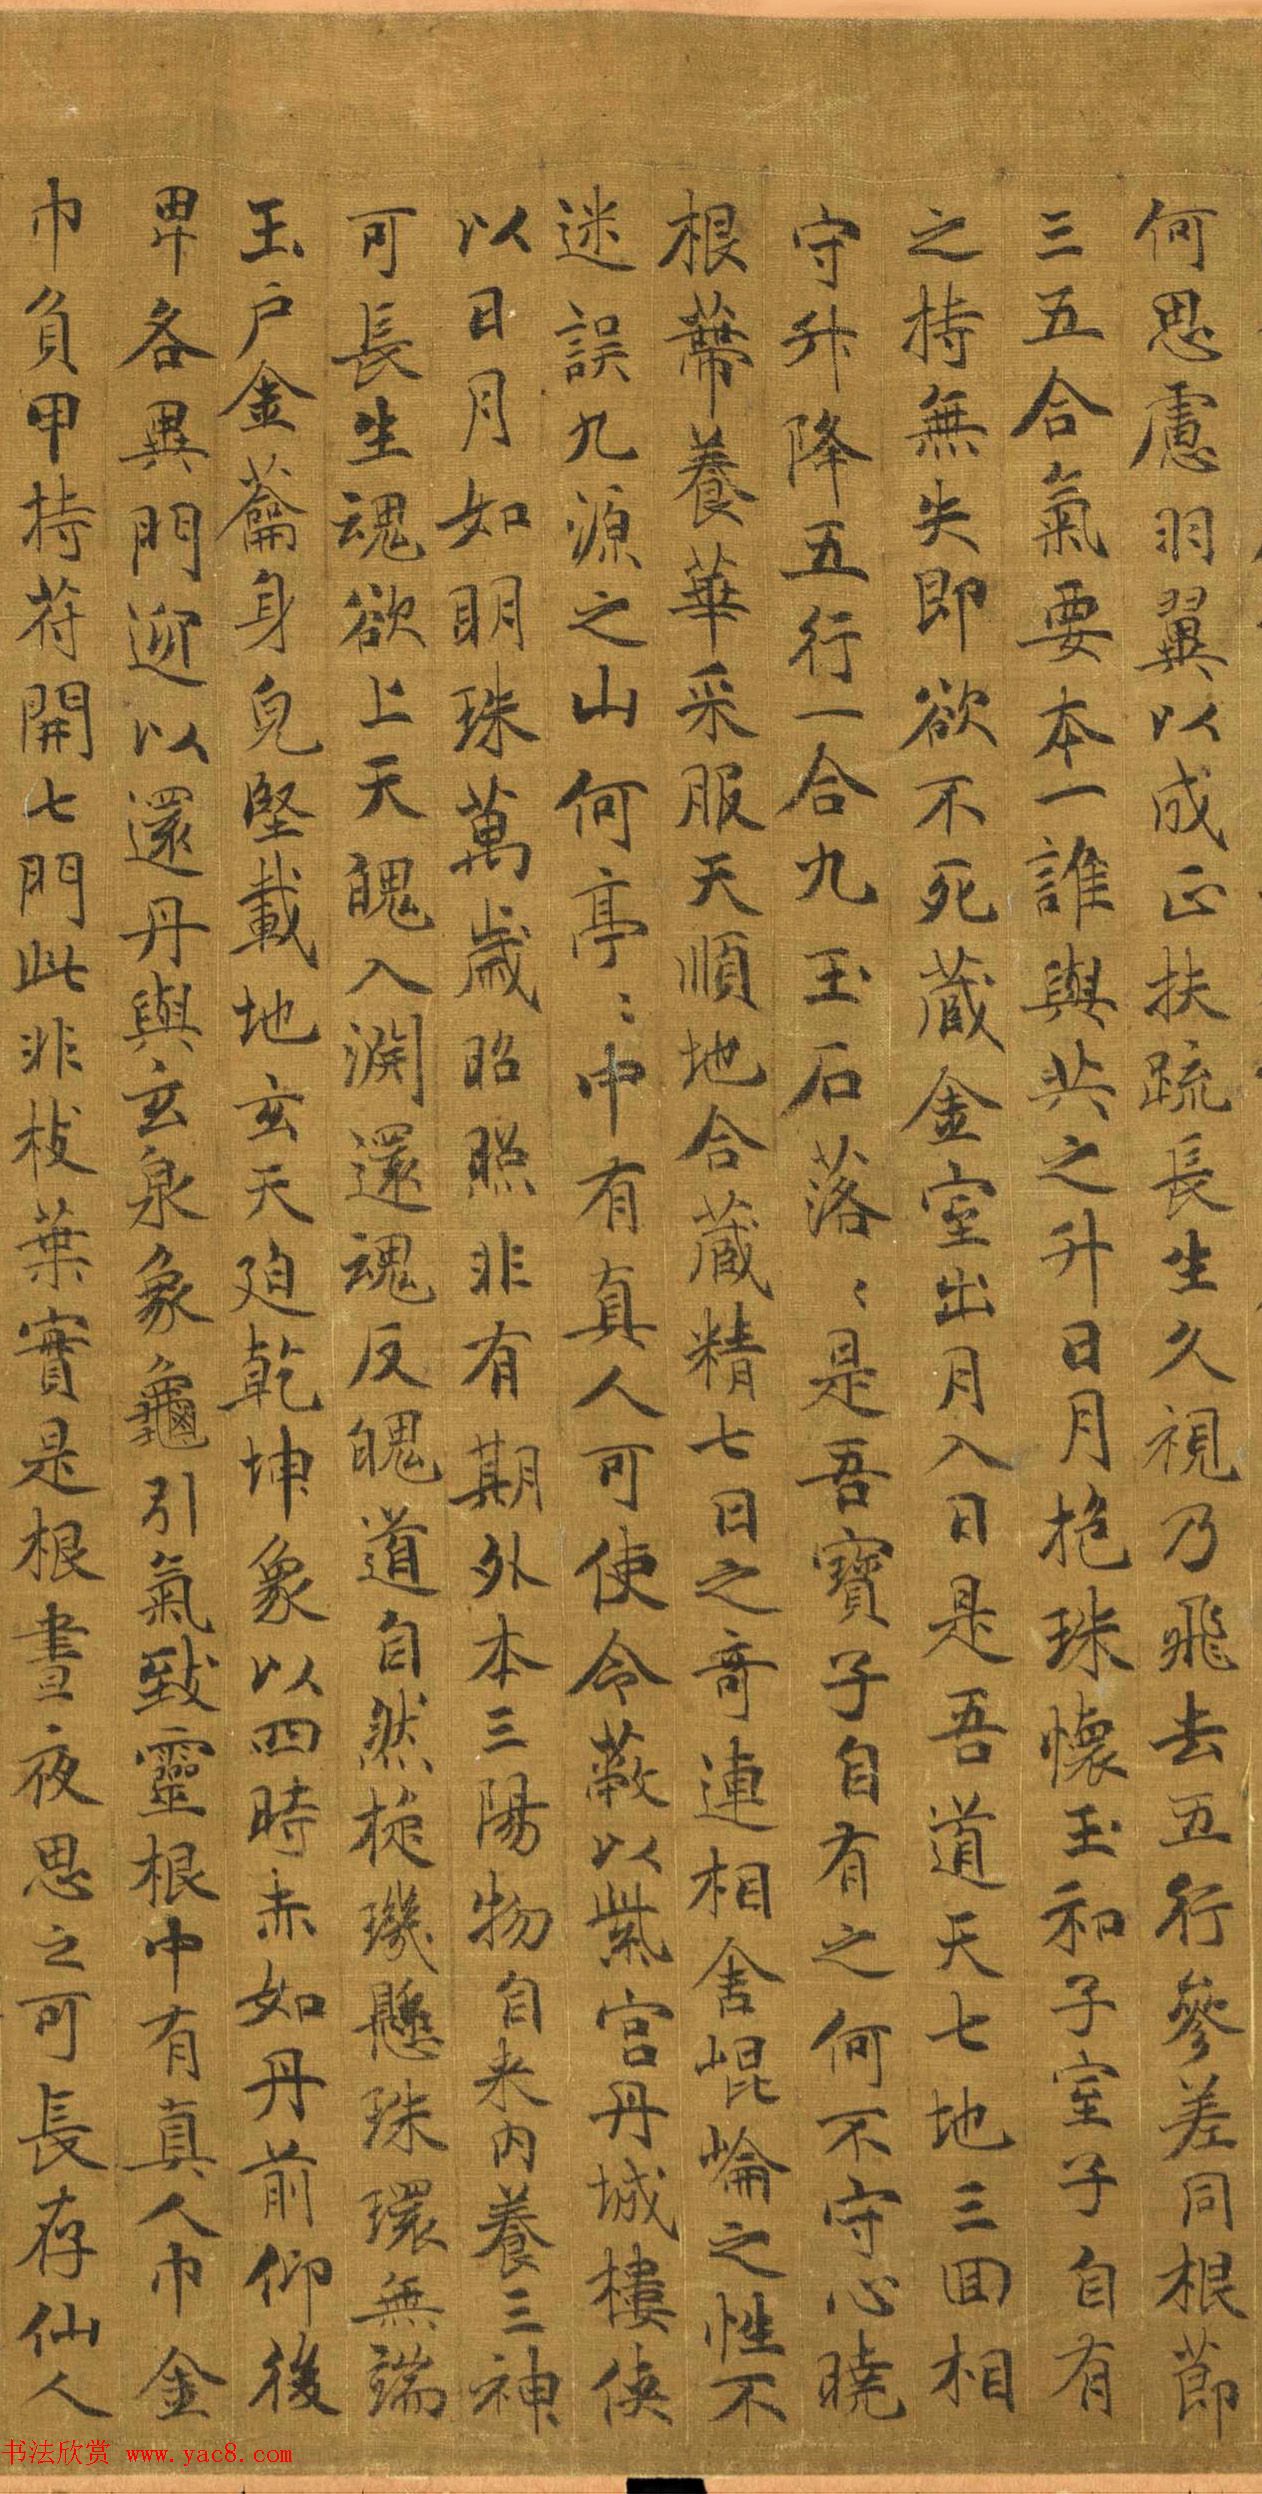 何思慮羽翼以成正扶疏長生久視乃飛去五行參差同根節
三五合氣要本一誰與共之升日月抱珠懷玉和子室子自有
之持無失即欲不死藏金室出月入日是吾道天七地三回相
守升降五行一合九玉石落〻是吾寶子自有之何不守心曉
根蒂養華采服天順地合藏精七日之奇連相舍崐崘之性不
迷誤九源之山何亭〻中有真人可使令蔽以紫宮丹城樓俠
以日月如明珠萬歲昭照非有期外本三陽物自来内養三神
可長生魂欲上天魄入淵還魂反魄道自然璇璣懸珠環無端
玉户金籥身皃堅載地玄天迫乾坤象以四時赤如丹前仰後
卑各異門迎以還丹與玄泉象龜引氣致靈根中有真人巾金
巾負甲持苻開七門此非枝葉實是根晝夜思之可長存仙人
书法欣赏 www.yac8.com